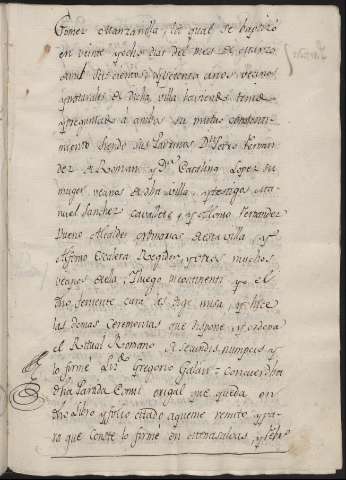 Gomez Manzanilla, la qual se baptizó
en veinte y ocho dias del mes de marzo
de mil seiscientos y setenta años vecinos
y naturales de dicha villa haviendo tenido
y preguntado a ambos su mutuo consenti-
miento siendo sus Padrinos Dn. Pedro Fernan-
dez de Romano y Da. Catalina Lopez su
muger vecinos de dha villa, y testigos Ma-
nuel Sanchez Cavallero, y Alonso Fernandez
Bueno Alcaldes ordinarios de esta villa, y
Alfonso Escalera Regidor, y otros muchos
vecinos de ella, Y luego incontinenti yo el
dho teniente cura les dige misa, y hice
las demas ceremonias que dispone y ordena
el Ritual Romano de secundis numpciis y
lo firmé Lizdo. Gregorio Galan = Concuerda
dha Partida con el origal que queda en
dho Libro y folio citado aque me remito, y pa-
ra que conste lo firmé en